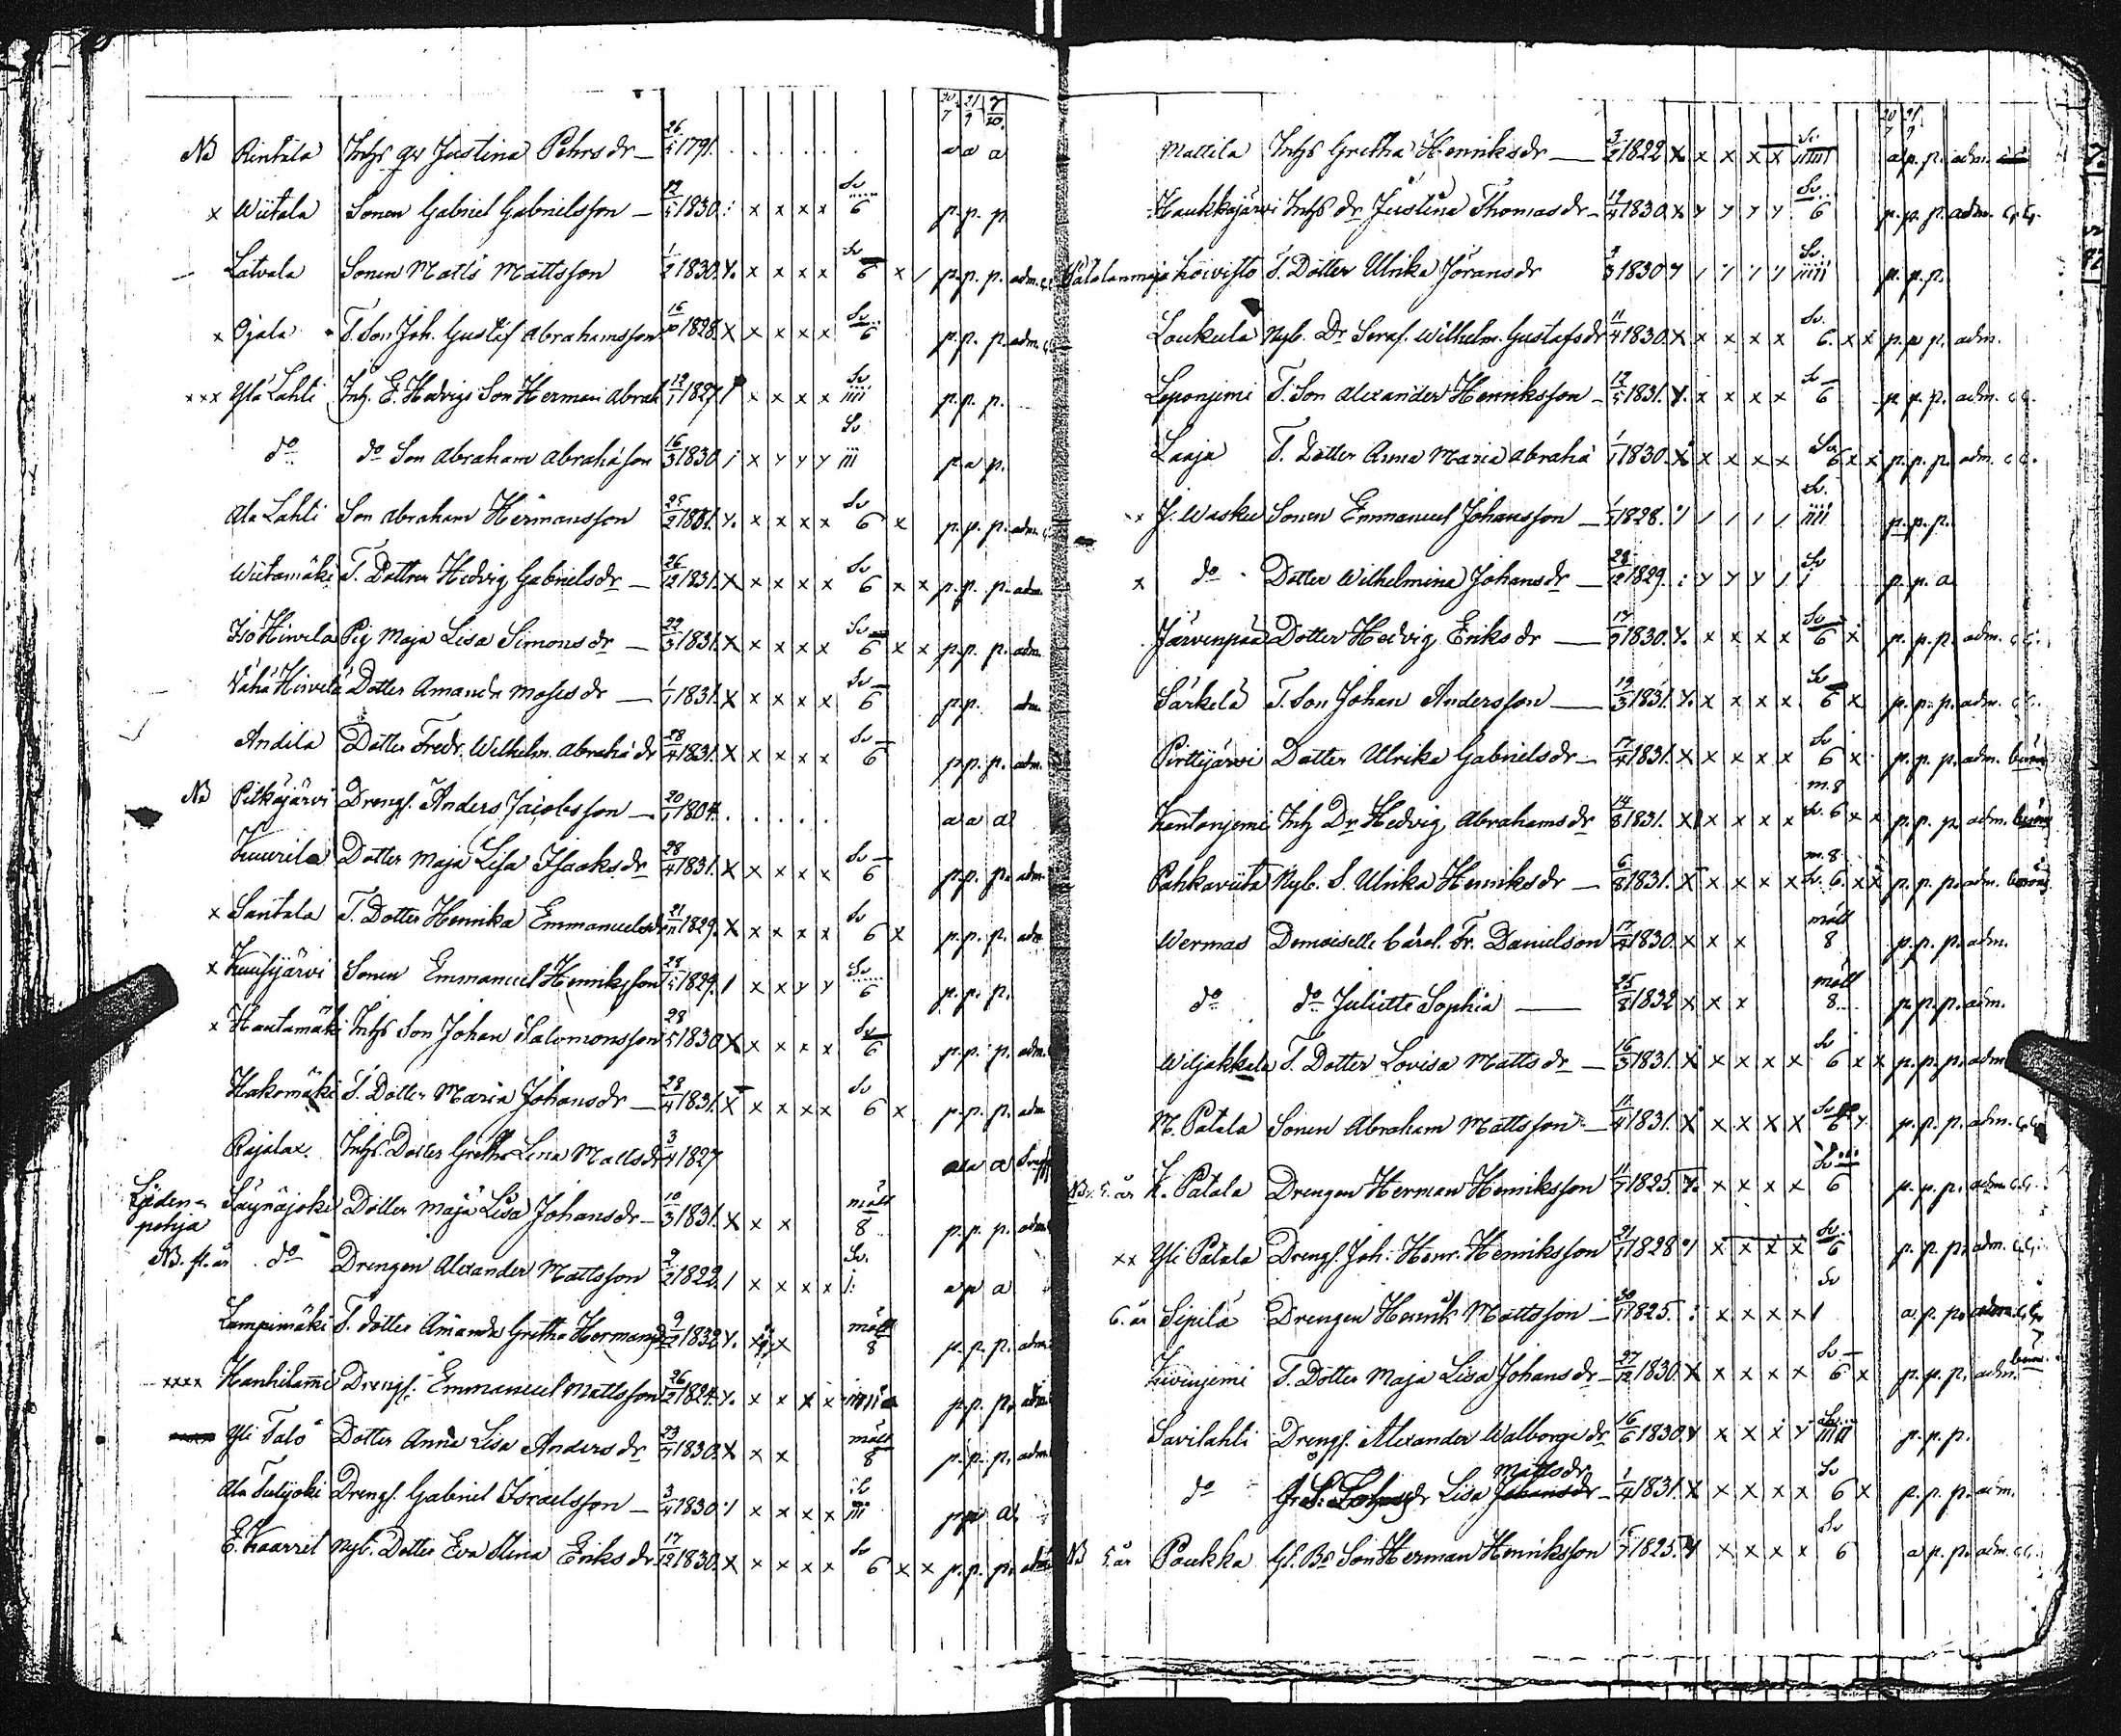 30/7 21/9 7/10.
NB Rintala Inhs qv Justina Pehrs dr — 26/5 1791. . . . . . a a a
x Wiitala Sonen Gabriel Gabrielsson — 12/5 1830. : x x x x Sv 6 p. p. p
— Latvala Sonen Matts Mattsson 1/2 1830. Y. x x x x Sv 6 x / p. p. p. adm.
x Ojala T. Son Joh. Gustaf Abrahamsson 16/10 1828. X x x x x Sv 6 p. p. p. adm.
xxx Ylä Lahti Inh. E. Hedvigs Son Herman Abrah 19/1 1827 / x x x x Sv iiii p. p. p.
do do Son Abraham Abrahåson 16/3 1830 / x y y y Sv iii p a p.
Ala Lahti Son Abraham Hermansson 25/2 1831. Y. x x x x Sv 6 x p. p. p. adm.
Wiitamäki T. Dottren Hedvig Gabrielsdr — 26/12 1831. X x x x x Sv 6 x x p. p. p. adm.
Iso Hirvelä Pig Maja Lisa Simons dr — 22/3 1831. X x x x x Sv 6 x x p. p. p. adm
Vähä Hirvelä Dotter Amanda Moses dr — 1/7 1831. X x x x x Sv 6 p. p. adm
Andila Dotter Fredr. Wilhelm. Abrahå dr 28/4 1831. X x x x x Sv 6 p. p. p. adm.
NB Pitkäjärvi Drengs. Anders Jacobsson — 20/1 1804. . . . . . a a a
Kuurila Dotter Maja Lisa Isaaks dr 28/4 1831. X x x x x Sv 6 p. p. p. adm.
x Santala T. Dotter Henrika Emmanuelsdr 21/11 1829. X x x x x Sv 6 x p. p. p. adm
x Kuusijärvi Sonen Emmanuel Henriksson 28/5 1829. / x x y y Sv 6 p. p. p.
x Hautamäki Inhs Son Johan Salomonsson 28/5 1830 X x x x x Sv 6 p. p. p. adm.
Hakomäki T. Dotter Maria Johansdr — 28/4 1831. X x x x x Sv 6 x p. p. p. adm
Rajalax. Inhs. Dotter Gretha Lena Matts dr 3/4 1827 a a a
Lyden-pohja Säynäjoki Dotter Maja Lisa Johansdr — 10/3 1831. X x x mått 8 p. p. p. adm
NB. fl. år do Drengen Alexander Mattsson 2/2 1822. / x x x x Sv. i: a p a
Lampimäki T. dotter Amanda Gretha Hermansd 9/2 1832 Y. x x mått 8 p. p. p. adm.
xxxx Hanhilammi Drengs. Emmanuel Mattsson 26/2 1824. Y. x x x x p. p. p. adm
Yli Talo Dotter Anna Lisa Anders dr 23/4 1830. X x x mått 8 p. p. p. adm
Ala Tulijoki Drengs. Gabriel Israelsson — 3/4 1830 / x x x x iii p p a
E. Kaarret Nyb. Dotter Eva Stina Eriks dr 17/12 1830. X x x x x Sv 6 x x p. p. p. adm
30/7 21/9
Mattila Inhs Gretha Henriksdr — 3/2 1822 X x x x x Sv iiiii a p. p. adm.
Haukkajärvi Inhs dr Justina Thomas dr — 19/4 1830. X y y y y Sv 6 p. p. p. adm.
Pätalanmaja Koivisto T. Dotter Ulrika Jörans dr 3/3 1830 y / y y y Sv. iiiii p. p. p.
Loukula Nyb. Dr Seraf. Wilhelm. Gustafsdr 11/4 1830. X x x x x Sv. 6. x x p. p. p. adm.
Leponjemi T. Son Alexander Henriksson — 12/5 1831. Y. x x x x Sv 6 p. p. p. adm.
Laaja T. Dotter Anna Maria Abrahå 1/1 1830. X x x x x Sv 6 x x p. p. p. adm.
xx J. Wasku Sonen Emmanuel Johansson — 1828. / / / / / Sv. iiii p. p. p.
x do Dotter Wilhelmina Johans dr — 28/12 1829. : y y y / Sv i p. p. a
Järvenpää Dotter Hedvig Eriks dr — 13/9 1830. Y. x x x x Sv 6 x p. p. p. adm.
Särkelä T. Son Johan Andersson — 19/3 1831. Y. x x x x Sv 6 x p. p. p. adm.
Pirttijärvi Dotter Ulrika Gabrielsdr — 17/4 1831. X x x x x Sv 6 x p. p. p. adm.
Kantonjemi Inh Dr Hedvig Abrahams dr 14/8 1831. X x x x x m. 8 Sv. 6 x x p. p. p. adm.
Pahkaviita Nyb. D. Ulrika Henriks dr — 6/8 1831. X x x x x m. 8. Sv. 6. x x p. p. p. adm.
Wermas Demoiselle Carol. Fr. Danielson 17/4 1830. x x x mått 8 p. p. p. adm.
do do Juliette Sophia — 25/8 1832 x x x mått 8. p. p. p. adm.
Wiljakkala T. Dotter Lovisa Matts dr — 16/3 1831. X x x x x Sv 6 x x p. p. p. adm
M. Patala Sonen Abraham Mattsson — 11/4 1831. X x x x x Sv 6 Y p. p. p. adm.
NB. 5. år K. Patala Drengen Herman Henriksson 11/7 1825. Y. x x x x Sv 6 p. p. p. adm.
xx Yli Patala Drengs. Joh. Henr. Henriksson 21/1 1828 / x x x x Sv 6 p. p. p. adm.
6. år Sipilä Drengen Henrik Mattsson — 30/11 1825. : x x x x / Sv a p. p. adm
Kivinjemi T. Dotter Maja Lisa Johans dr — 27/12 1830. X x x x x Sv 6 x p. p. p. adm.
Savilahti Drengs. Alexander Walborge dr 16/6 1830. Y x x x y Sv. iiiii p. p. p.
do Lisa Johans dr Matts dr — 1/4 1831. X x x x x Sv 6 x p. p. p. adm.
NB 5. år Paukka Gl. Bs Son Herman Henriksson 15/7 1825. Y x x x x Sv 6 a p. p. adm.